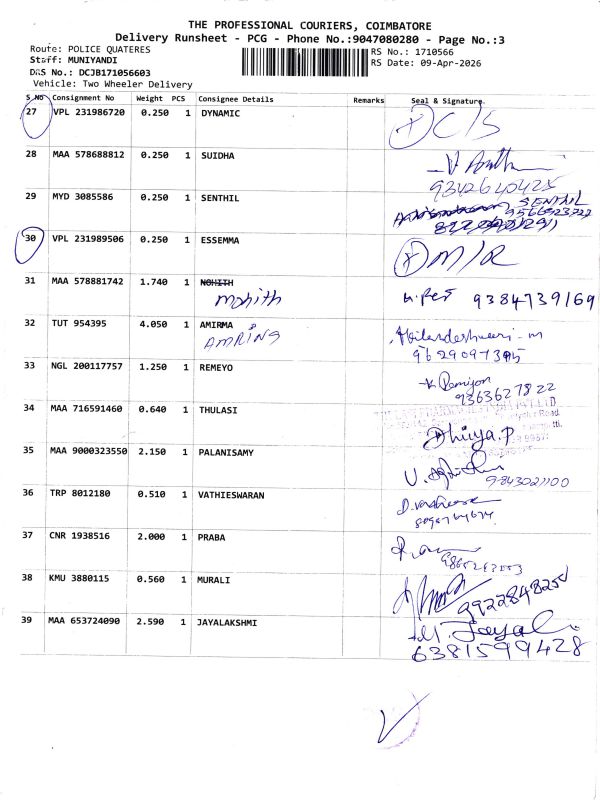 THE PROFESSIONAL COURIERS, COIMBATORE
Delivery Runsheet - PCG - Phone No.:9047080280 - Page No.:3
Route: POLICE QUATERES
Staff: MUNIYANDI
DRS No.: DCJB171056603
Vehicle: Two Wheeler Delivery
RS No.: 1710566
RS Date: 09-Apr-2026
S.No Consignment No Weight PCS Consignee Details Remarks Seal & Signature
27 VPL 231986720 0.250 1 DYNAMIC C/S
28 MAA 578688812 0.250 1 SUIDHA
9342640425
29 MYD 3085586 0.250 1 SENTHIL SENTHIL
30 VPL 231989506 0.250 1 ESSEMMA M/R
31 MAA 578881742 1.740 1 NOHITH
Mohith 9384739169
32 TUT 954395 4.050 1 AMIRMA
AMRING
33 NGL 200117757 1.250 1 REMEYO
9363627822
34 MAA 716591460 0.640 1 THULASI
Dhivya.P
35 MAA 9000323550 2.150 1 PALANISAMY
9843021100
36 TRP 8012180 0.510 1 VATHIESWARAN
37 CNR 1938516 2.000 1 PRABA
38 KMU 3880115 0.560 1 MURALI
39 MAA 653724090 2.590 1 JAYALAKSHMI
6381599428